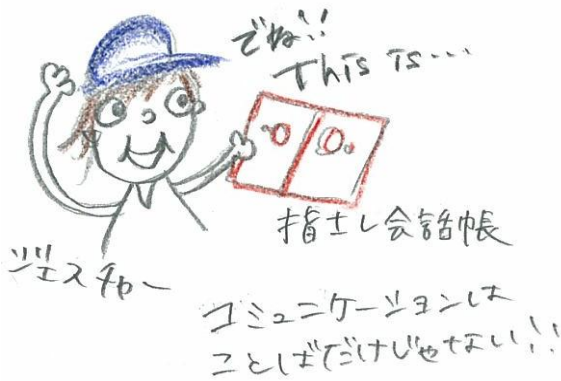 でね!!
This is...
指士し会話帳
ジェスチャー
コミュニケーションは
ことばだけじゃない!!